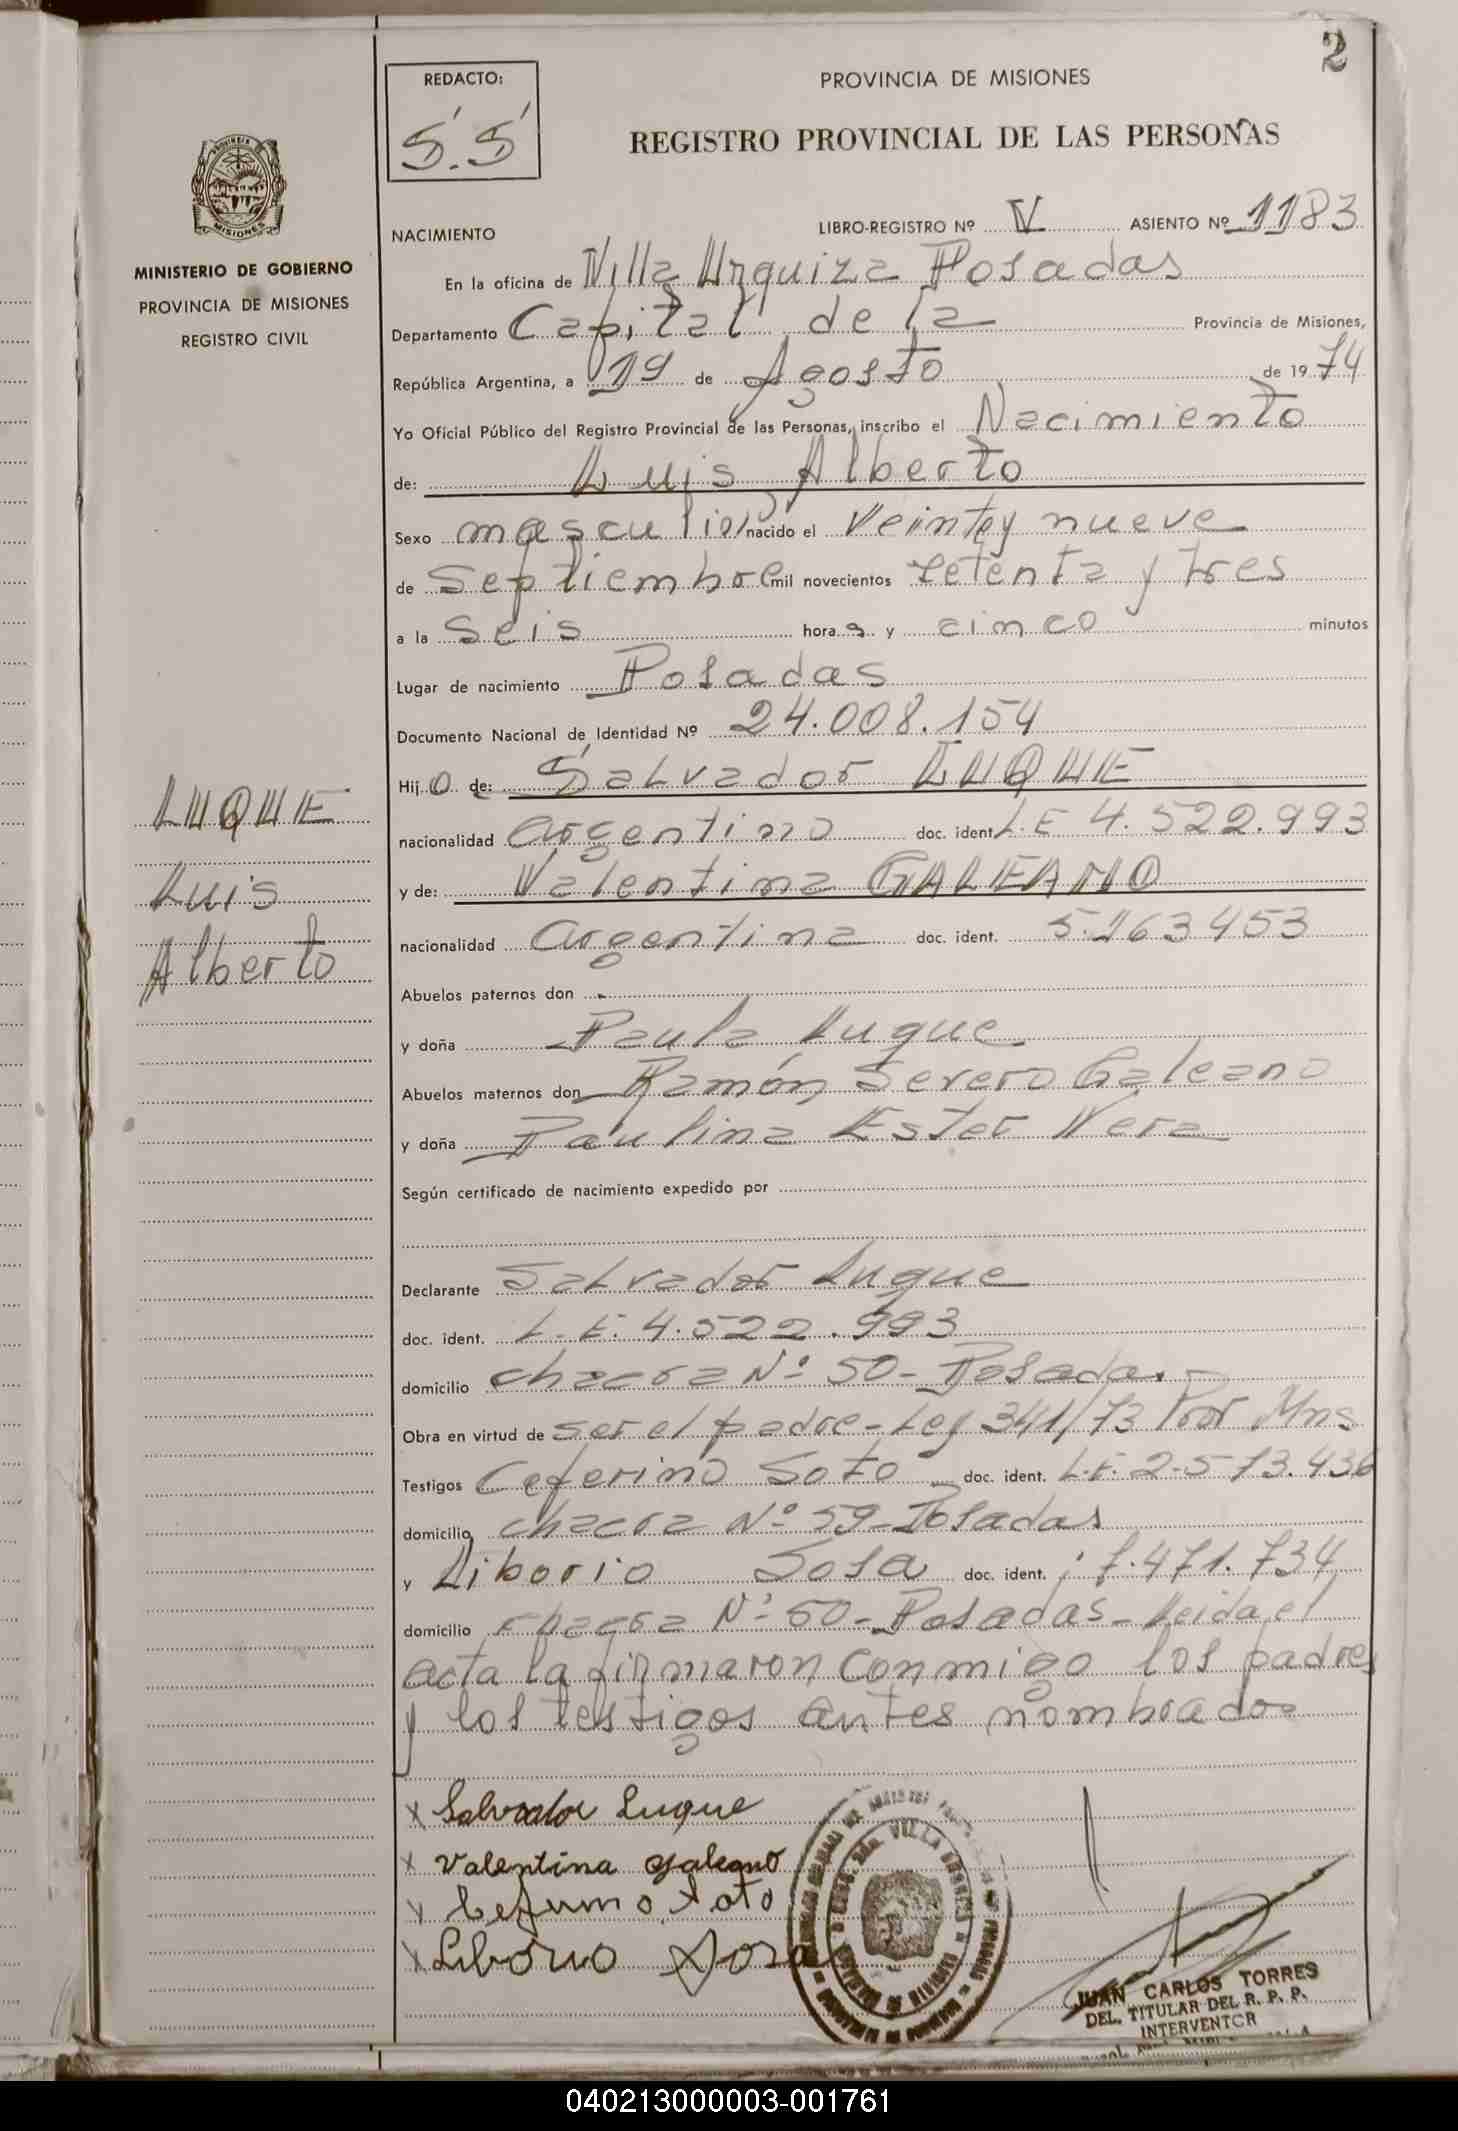 2
REDACTO:
S.S
PROVINCIA DE MISIONES
REGISTRO PROVINCIAL DE LAS PERSONAS
PROVINCIA DE
MISIONES
MINISTERIO DE GOBIERNO
PROVINCIA DE MISIONES
REGISTRO CIVIL
LUQUE
Luis
Alberto
NACIMIENTO LIBRO-REGISTRO Nº IV ASIENTO Nº 1183
En la oficina de Villa Urquiza Posadas
Departamento Capital de la Provincia de Misiones,
República Argentina, a 19 de Agosto de 1974
Yo Oficial Público del Registro Provincial de las Personas, inscribo el Nacimiento
de: Luis Alberto
Sexo masculio nacido el Veintey nueve
de Septiembre mil novecientos setenta y tres
a la seis horas y cinco minutos
Lugar de nacimiento Posadas
Documento Nacional de Identidad Nº 24.008.154
Hijo de: Salvador LUQUE
nacionalidad argentino doc. ident. L.E 4.522.993
y de: Valentina GALEANO
nacionalidad argentina doc. ident. 5.163453
Abuelos paternos don -
y doña Paula Luque
Abuelos maternos don Ramón Severo Galeano
y doña Paulina Ester Vera
Según certificado de nacimiento expedido por
Declarante Salvador Luque
doc. ident. L.E. 4.522.993
domicilio chacra Nº 50- Posadas
Obra en virtud de ser el padre-Ley 341/73 Por Mns
Testigos Ceferino Soto doc. ident. L.E. 2.573.436
domicilio chacra Nº 59-Posadas
y Liborio Sosa doc. ident. 7.471.734
domicilio chacra Nº 50-Posadas-Leida el
acta la firmaron conmigo los padres
y los testigos antes nombrados
x Salvador Luque
x Valentina galeano
x Cefirino Soto
x Liborio Sosa
JUAN CARLOS TORRES
DEL. TITULAR DEL R. P. P.
INTERVENTOR
040213000003-001761